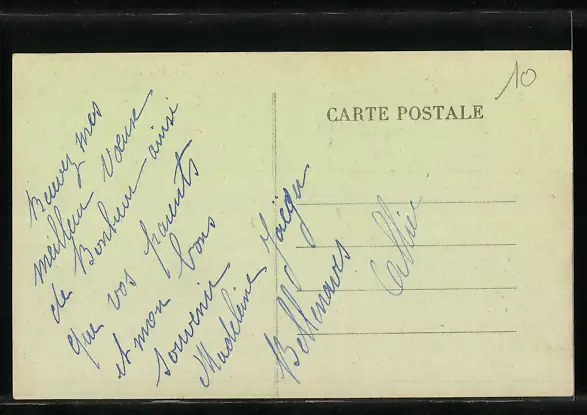 10
CARTE POSTALE
Recevez mes
meilleur Vœux
de Bonheur ainsi
que vos parents
et mon bons
souvenir
Madeleine Jaegu
Bellenaves
Allier